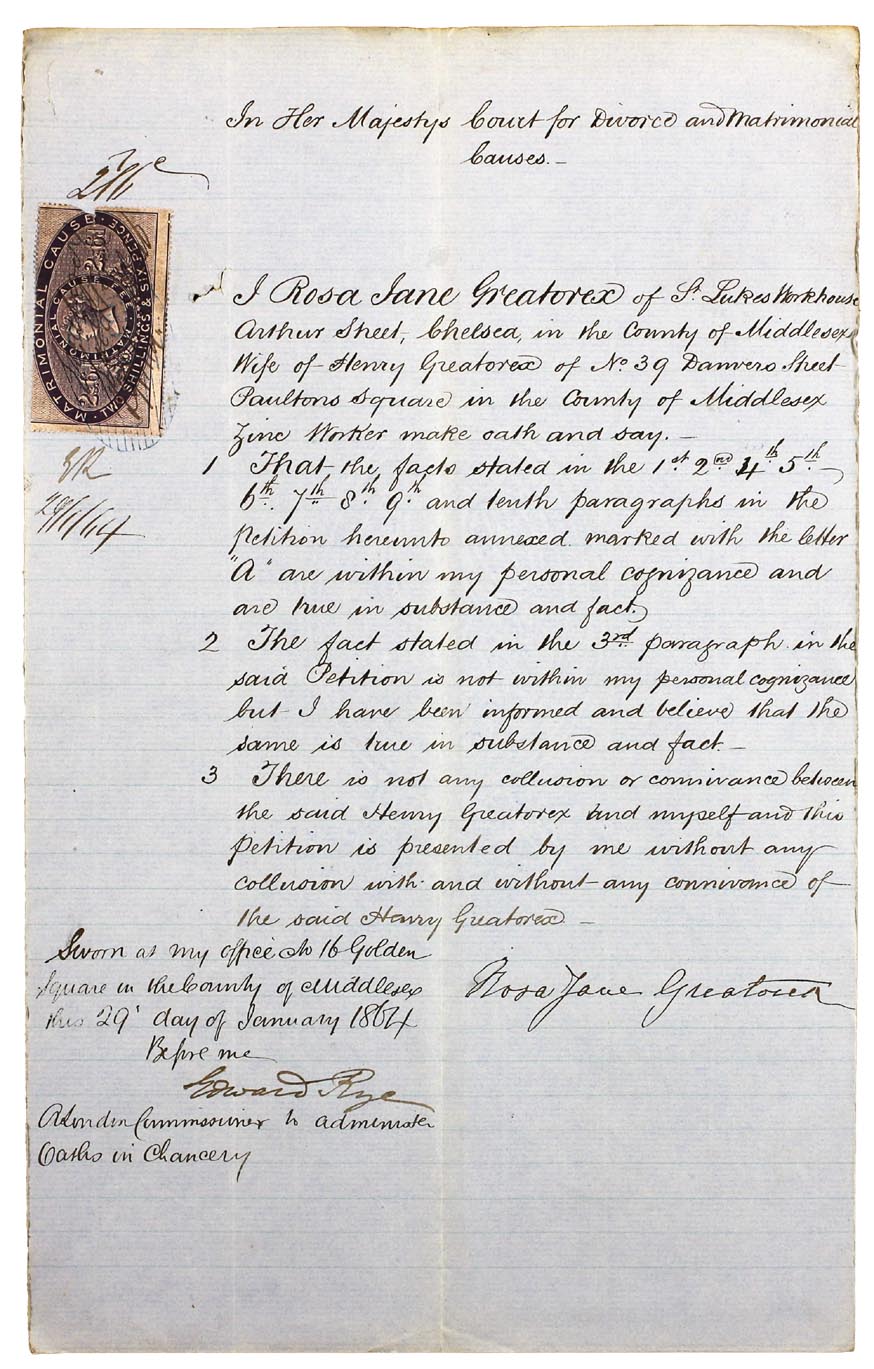 In Her Majestys Court for Divorce and Matrimonial
Causes.—
2/6
MATRIMONIAL CAUSE
MATRIMONIAL CAUSE FEE
SHILLINGS & SIXPENCE
I Rosa Jane Greatorex of St. Lukes Workhouse
Arthur Street, Chelsea, in the County of Middlesex
Wife of Henry Greatorex of No 39 Danvers Street
Paultons Square in the County of Middlesex
Zinc Worker make oath and say.—
1 That the facts stated in the 1st 2nd 4th 5th
6th 7th 8th 9th and tenth paragraphs in the
Petition hereunto annexed marked with the letter
"A" are within my personal cognizance and
are true in substance and fact.
ER
29/1/64
2 The fact stated in the 3rd paragraph in the
said Petition is not within my personal cognizance
but I have been informed and believe that the
same is true in substance and fact—
3 There is not any collusion or connivance between
the said Henry Greatorex and myself and this
Petition is presented by me without any
collusion with and without any connivance of
the said Henry Greatorex —
Sworn at my office No 16 Golden
Square in the County of Middlesex
this 29 day of January 1864
Before me
Edward Rye
A London Commissioner to administer
Oaths in Chancery
Rosa Jane Greatorex